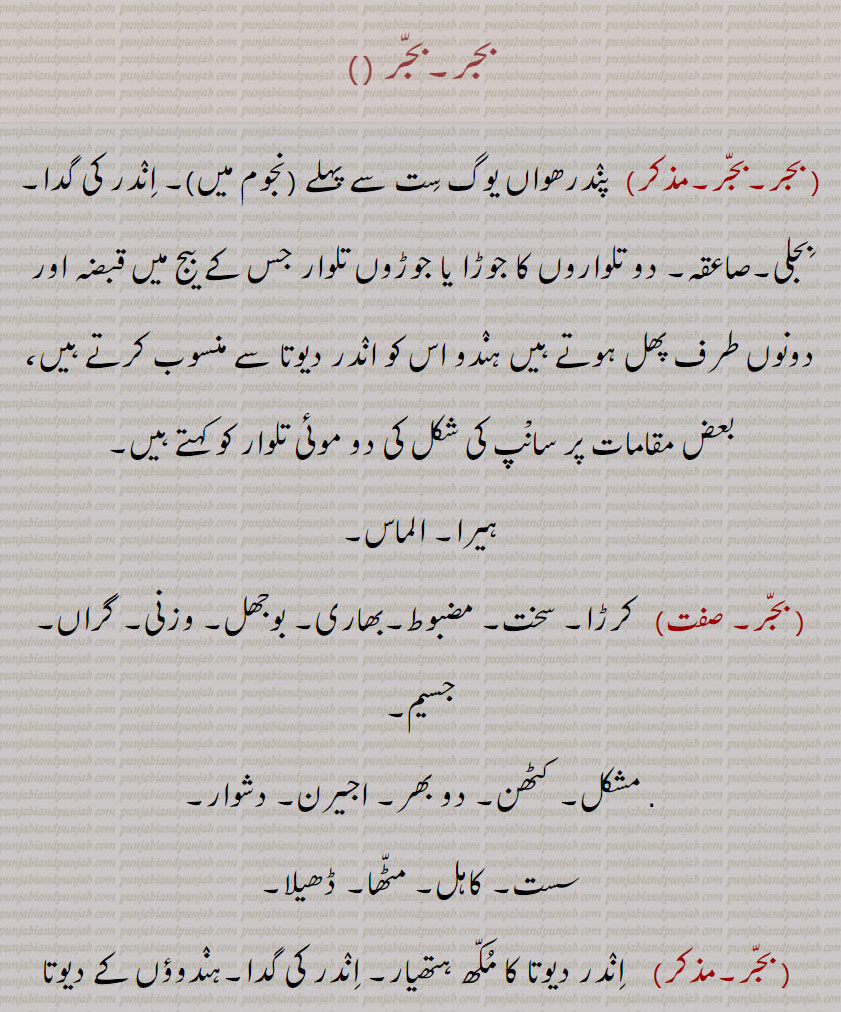 بجر۔ بجّر ()
(بجر۔ بجّر۔ مذکر) پنْدرھواں یوگ سِت سے پہلے (نجوم میں)۔ اِنْدر کی گدا۔
بِجلی۔صاعقہ۔ دو تلواروں کا جوڑا یا جوڑوں تلوار جس کے بیچ میں قبضہ اور
دونوں طرف پھل ہوتے ہیں ہنْدو اس کو انْدر دیوتا سے منسوب کرتے ہیں،
بعض مقامات پر سانْپ کی شکل کی دو موئی تلوار کو کہتے ہیں۔
ہیرا۔ الماس۔
(بجّر۔ صفت) کرڑا۔ سخت۔ مضبوط۔بھاری۔ بوجھل۔ وزنی۔ گراں۔
جسیم۔
. مشکل۔ کٹھن۔ دو بھر۔ اجیرن۔ دشوار۔
سست۔ کاہل۔ مٹّھا۔ ڈھیلا۔
(بجّر۔مذکر) اِنْدر دیوتا کا مُکّھ ہتھیار۔ اِنْدر کی گدا۔ہنْدوؤں کے دیوتا
punjabiandpunjab.com